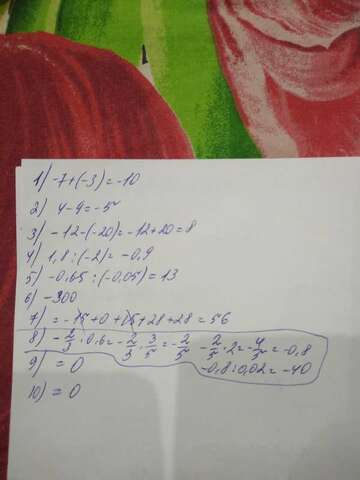 1) -7+(-3)=-10
2) 4-9=-5
3) -12-(-20)=-12+20=8
4) 1,8:(-2)=-0,9
5) -0,65:(-0,05)=13
6) -300
7) =-15+0+15+28+28=56
8) -2/3·0,6=-2/3·3/5=-2/5 -2/5·2=-4/5=-0,8
-0,8:0,02=-40
9) =0
10) =0